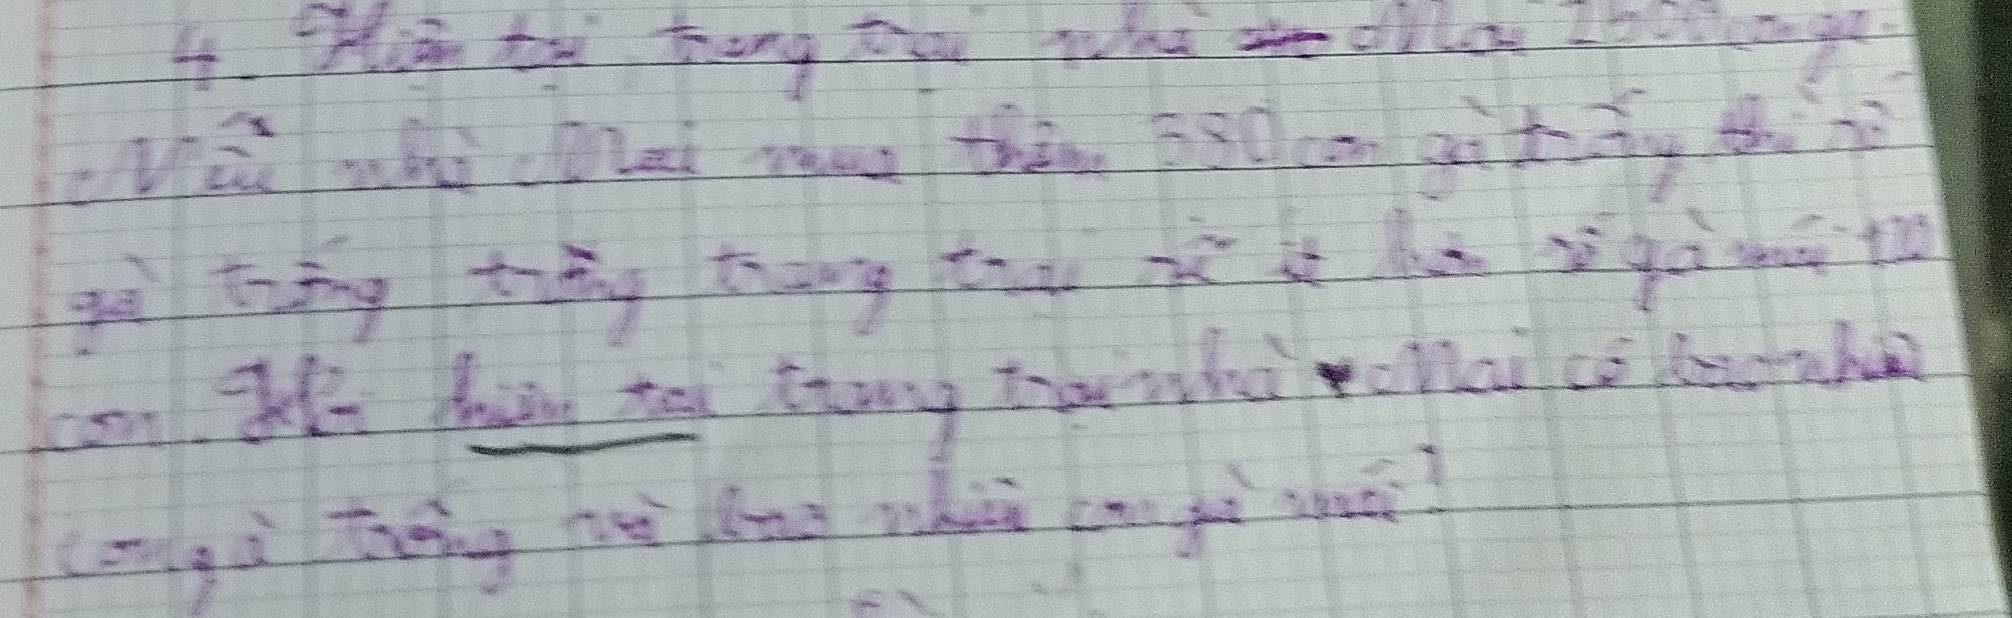 4. Hiện tại trang trại nhà Mai con gà.
Nếu nhà Mai mua thêm con gà trống thì số
gà trống trong trang trại sẽ ít hơn số gà mái
con. Hỏi hiện tại trang trại nhà Mai có bao nhiêu
con gà trống và bao nhiêu con gà mái?